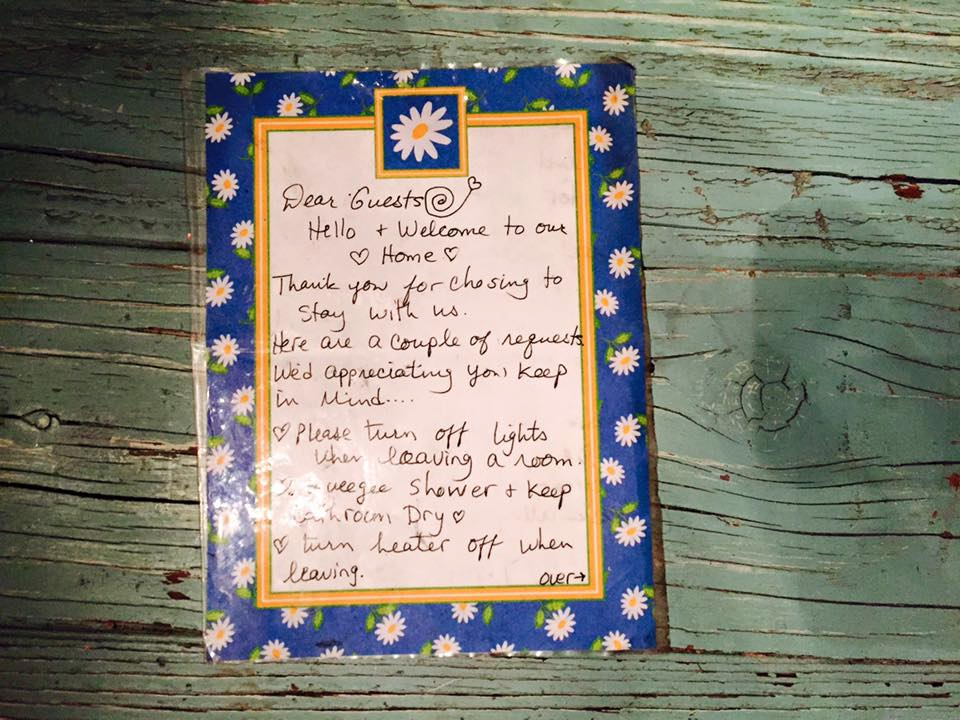 Dear Guests
Hello + Welcome to our
♡ Home ♡
Thank you for chosing to
Stay with us.
Here are a couple of requests
We'd appreciating you, keep
in Mind....
♡ Please turn off lights
when leaving a room.
Squeegee Shower + keep
Bathroom Dry ♡
♡ turn heater off when
leaving.
over→